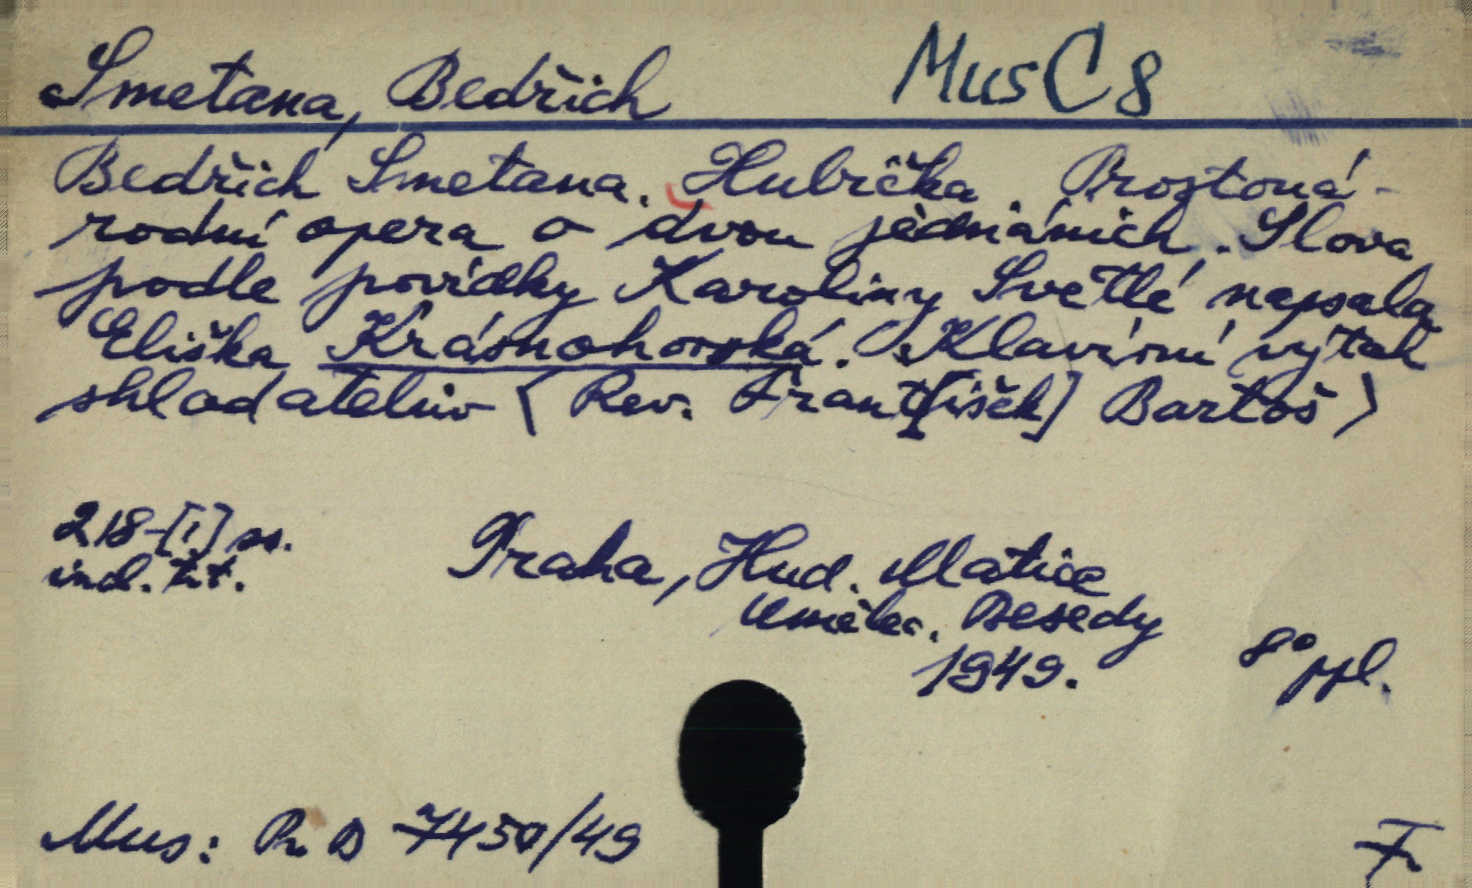 Smetana, Bedřich MusC8
Bedřich Smetana. Hubička. Prostoná-
rodní opera o dvou jednáních. Slova
podle povídky Karoliny Světlé napsala
Eliška Krásnohorská. Klavírní výtah
skladatelův < Rev. Frant[išek] Bartoš >
218-[1] ss.
incl. tit.
Praha, Hud. Matice
Umělec. Besedy
1949. 8° ppl.
Mus: Pr. D 7450/49